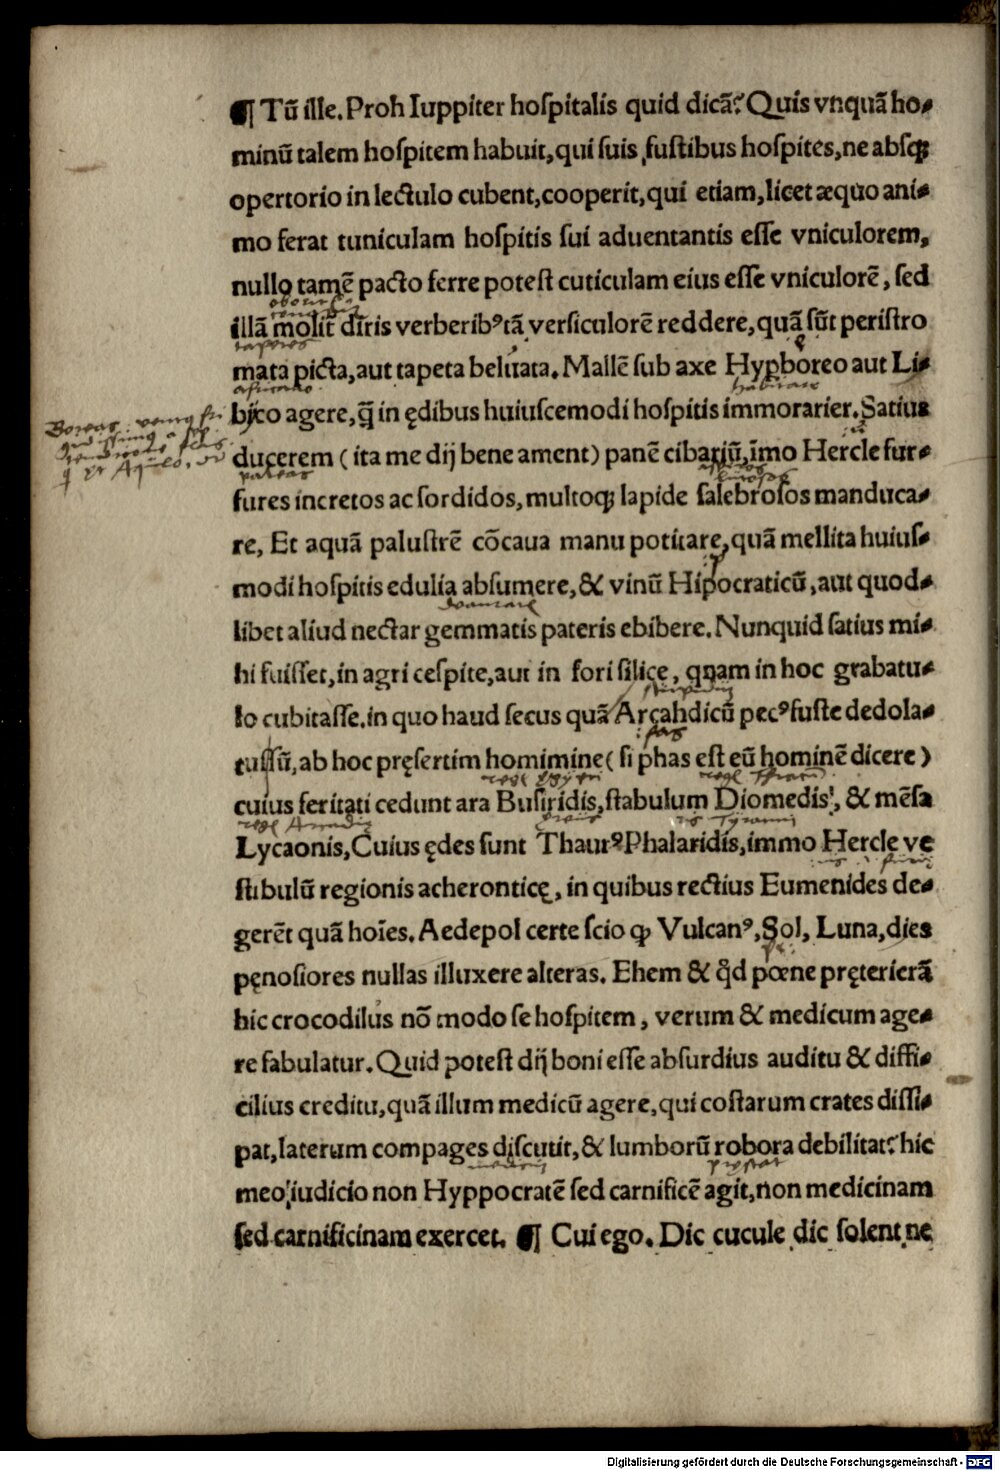 ¶ Tū ille. Proh Iuppiter hospitalis quid dicā? Quis vnquā ho-
minū talem hospitem habuit, qui suis fustibus hospites, ne absq;
opertorio in lectulo cubent, cooperit, qui etiam, licet æquo ani-
mo ferat tuniculam hospitis sui aduentantis esse vniculorem,
nullo tamē pacto ferre potest cuticulam eius esse vniculorē, sed
illā molit diris verberibꝰ tā versiculorē reddere, quā sūt peristro
mata picta, aut tapeta beluata. Mallē sub axe Hypboreo aut Li-
byco agere, q̄ in ędibus huiuscemodi hospitis immorarier. Satius
ducerem ( ita me dij bene ament ) panē cibariū, īmo Hercle fur-
fures incretos ac sordidos, multoq; lapide salebrosos manduca-
re, Et aquā palustrē cōcaua manu potitare, quā mellita huius-
modi hospitis edulia absumere, & vinū Hipocraticū, aut quod-
libet aliud nectar gemmatis pateris ebibere. Nunquid satius mi-
hi fuisset, in agri cespite, aut in fori silice, quam in hoc grabatu-
lo cubitasse. in quo haud secus quā Arcahdicū pecꝰ fuste dedola-
tussū, ab hoc pręsertim homimine ( si phas est eū hominē dicere )
cuius feritati cedunt ara Busiridis, stabulum Diomedis, & mēsa
Lycaonis, Cuius ędes sunt Thaurꝰ Phalaridis, immo Hercle ve
stibulū regionis acheronticę, in quibus rectius Eumenides de-
gerēt quā hoīes. Aedepol certe scio ꝙ Vulcanꝰ, Sol, Luna, dies
pęnosiores nullas illuxere alteras. Ehem & qd pœne pręterierā
hic crocodilus nō modo se hospitem, verum & medicum age-
re fabulatur. Quid potest dij boni esse absurdius auditu & diffi-
cilius creditu, quā illum medicū agere, qui costarum crates dissi-
pat, laterum compages discutit, & lumborū robora debilitat? hic
meo iudicio non Hyppocratē sed carnificē agit, non medicinam
sed carnificinam exercet. ¶ Cui ego. Dic cucule dic solent ne
Digitalisierung gefördert durch die Deutsche Forschungsgemeinschaft - DFG